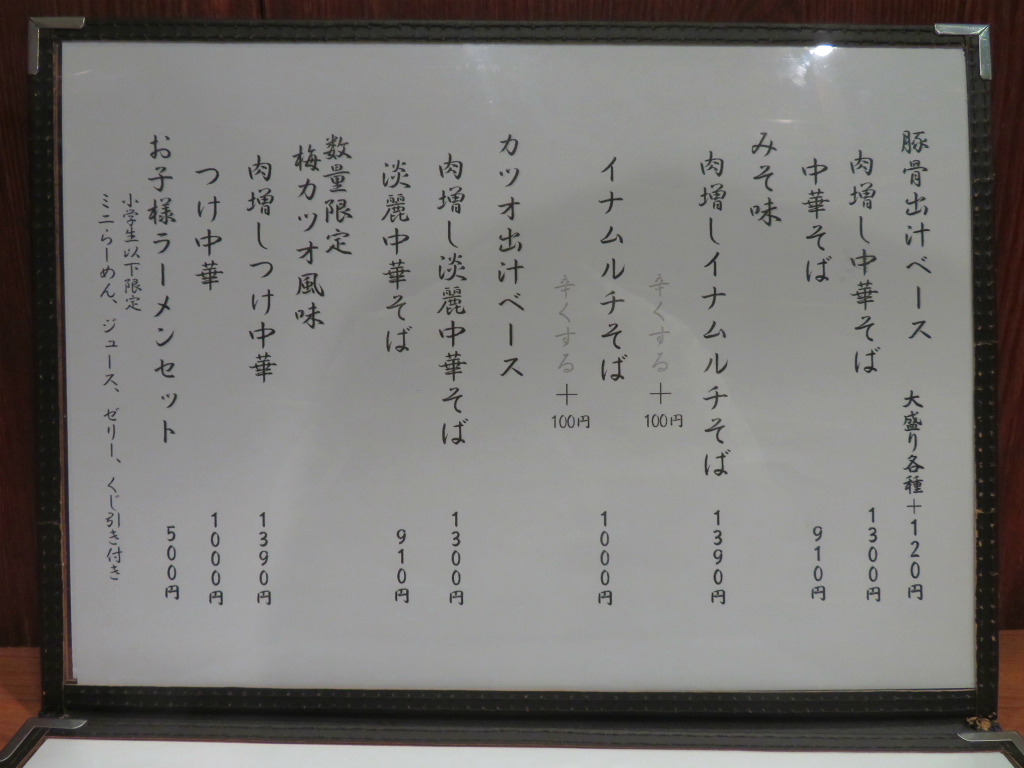 豚骨出汁ベース 大盛り各種+120円
肉増し中華そば 1300円
中華そば 910円
みそ味
肉増しイナムルチそば 1390円
辛くする+100円
イナムルチそば 1000円
辛くする+100円
カツオ出汁ベース
肉増し淡麗中華そば 1300円
淡麗中華そば 910円
数量限定
梅カツオ風味
肉増しつけ中華 1390円
つけ中華 1000円
お子様ラーメンセット 500円
小学生以下限定
ミニらーめん、ジュース、ゼリー、くじ引き付き